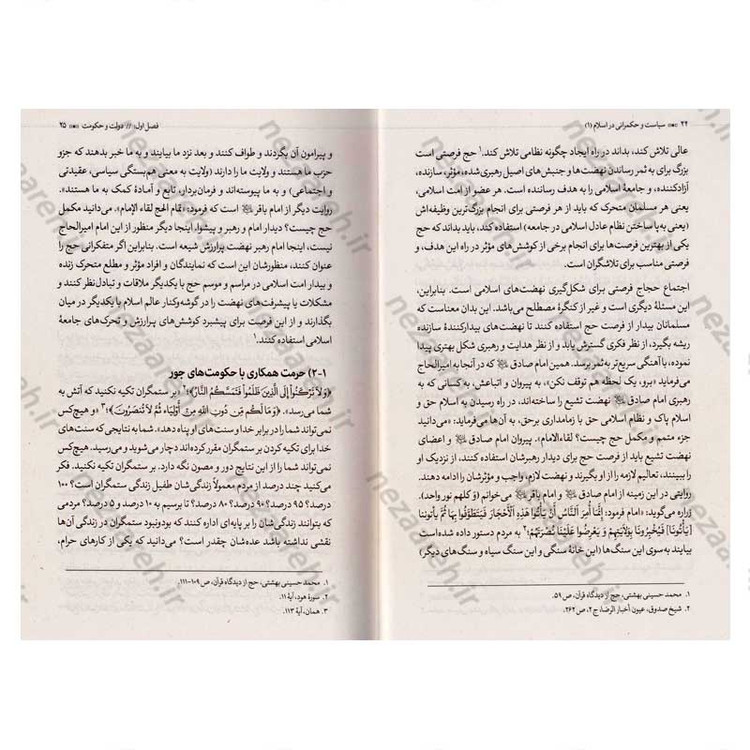 ۲۴ سیاست و حکمرانی در اسلام (۱)
عالی تلاش کند، بداند در راه ایجاد چگونه نظامی تلاش کند.۱ حج فرصتی است
بزرگ برای به ثمر رساندن نهضت‌ها و جنبش‌های اصیل رهبری‌شده، مؤثر، سازنده،
آزادکننده، و جامعهٔ اسلامی را به هدف رساننده است. هر عضو از امت اسلامی،
یعنی هر مسلمان متحرک که باید از هر فرصتی برای انجام بزرگ‌ترین وظیفه‌اش
(یعنی به‌پا ساختن نظام عادل اسلامی در جامعه) استفاده کند، باید بداند که حج
یکی از بهترین فرصت‌ها برای انجام برخی از کوشش‌های مؤثر در راه این هدف، و
فرصتی مناسب برای تلاشگران است.
اجتماع حجاج فرصتی برای شکل‌گیری نهضت‌های اسلامی است. بنابراین،
این مسئلهٔ دیگری است و غیر از کنگرهٔ مصطلح می‌باشد. این بدان معناست که
مسلمانان بیدار از فرصت حج استفاده کنند تا نهضت‌های بیدارکنندهٔ سازنده
ریشه بگیرد، از نظر فکری گسترش یابد و از نظر هدایت و رهبری شکل بهتری پیدا
نموده، با آهنگی سریع‌تر به ثمر برسد. همین امام صادق که در آنجا به امیرالحاج
می‌فرماید «برو، یک لحظه هم توقف نکن»، به پیروان و اتباعش، به کسانی که به
رهبری امام صادق نهضت تشیع را ساخته‌اند، در راه رسیدن به اسلام حق و
اسلام پاک و نظام اسلامی حق با زمامداری برحق، به آن‌ها می‌فرماید: «می‌دانید
جزء متمم و مکمل حج چیست؟ لقاءالامام». پیروان امام صادق و اعضای
نهضت تشیع باید از فرصت حج برای دیدار رهبرشان استفاده کنند، از نزدیک او
را ببینند، تعالیم لازمه را از او بگیرند و نهضت لازم، واجب و مؤثرشان را ادامه دهند.
روایتی در این زمینه از امام صادق و امام باقر می‌خوانم (وَ کلهم نور واحد).
زراره می‌گوید: «امام فرمود: إِنَّمَا أُمِرَ النَّاسُ أَنْ يَأْتُوا هَذِهِ الْأَحْجَارَ فَيَتَطَوَّفُوا بِهَا ثُمَّ يَأْتُونَنَا
[يَأْتُونَا] فَيُخْبِرُونَا بِوَلَايَتِهِمْ وَ يَعْرِضُوا عَلَيْنَا نُصْرَتَهُمْ؛۲ به مردم دستور داده شده است
بیایند به‌سوی این سنگ‌ها (این خانهٔ سنگی و این سنگ سیاه و سنگ‌های دیگر)
۱. محمد حسینی بهشتی، حج از دیدگاه قرآن، ص ۵۹.
۲. شیخ صدوق، عیون أخبار الرضا، ج ۲، ص ۲۶۲.
فصل اول: // دولت و حکومت ۲۵
و پیرامون آن بگردند و طواف کنند و بعد نزد ما بیایند و به ما خبر بدهند که جزو
حزب ما هستند و ولایت ما را دارند (ولایت به معنی هم‌بستگی سیاسی، عقیدتی
و اجتماعی) و به ما پیوسته‌اند و فرمان‌بردار، تابع و آمادهٔ کمک به ما هستند».
روایت دیگر از امام باقر است که فرمود: «تمام الحج لقاء الإمام». می‌دانید مکمل
حج چیست؟ دیدار امام و رهبر و پیشوا. اینجا دیگر منظور از این امام امیرالحاج
نیست، اینجا امام رهبر نهضت پرارزش شیعه است. بنابراین اگر متفکرانی حج را
عنوان کنند، منظورشان این است که نمایندگان و افراد مؤثر و مطلع متحرک زنده
و بیدار امت اسلامی در مراسم و موسم حج با یکدیگر ملاقات و تبادل‌نظر کنند و
مشکلات یا پیشرفت‌های نهضت را در گوشه‌وکنار عالم اسلام با یکدیگر در میان
بگذارند و از این فرصت برای پیشبرد کوشش‌های پرارزش و تحرک‌های جامعهٔ
اسلامی استفاده کنند.۱
۲-۱) حرمت همکاری با حکومت‌های جور
«وَلَا تَرْكَنُوا إِلَى الَّذِينَ ظَلَمُوا فَتَمَسَّكُمُ النَّارُ»؛۲ بر ستمگران تکیه نکنید که آتش به
شما می‌رسد). «وَمَا لَكُم مِّن دُونِ اللَّهِ مِنْ أَوْلِيَاءَ ثُمَّ لَا تُنصَرُونَ»؛۳ و هیچ‌کس
نمی‌تواند شما را در برابر خدا و سنت‌های او پناه دهد. شما به نتایجی که سنت‌های
خدا برای تکیه کردن بر ستمگران مقرر کرده‌اند دچار می‌شوید و می‌رسید. هیچ‌کس
نمی‌تواند شما را از این نتایج دور و مصون نگه دارد. بر ستمگران تکیه نکنید. فکر
می‌کنید چند درصد از مردم معمولاً زندگی‌شان طفیل زندگی ستمگران است؟ ۱۰۰
درصد؟ ۹۵ درصد؟ ۹۰ درصد؟ ۸۰ درصد؟ تا برسیم به ۱۰ درصد و ۵ درصد؟ مردمی
که بتوانند زندگی‌شان را بر پایه‌ای اداره کنند که بودونبود ستمگران در زندگی آن‌ها
نقشی نداشته باشد عده‌شان چقدر است؟ می‌دانید که یکی از کارهای حرام،
۱. محمد حسینی بهشتی، حج از دیدگاه قرآن، ص ۱۰۹-۱۱۱.
۲. سورهٔ هود، آیهٔ ۱۱.
۳. همان، آیهٔ ۱۱۳.
nezaareh.ir